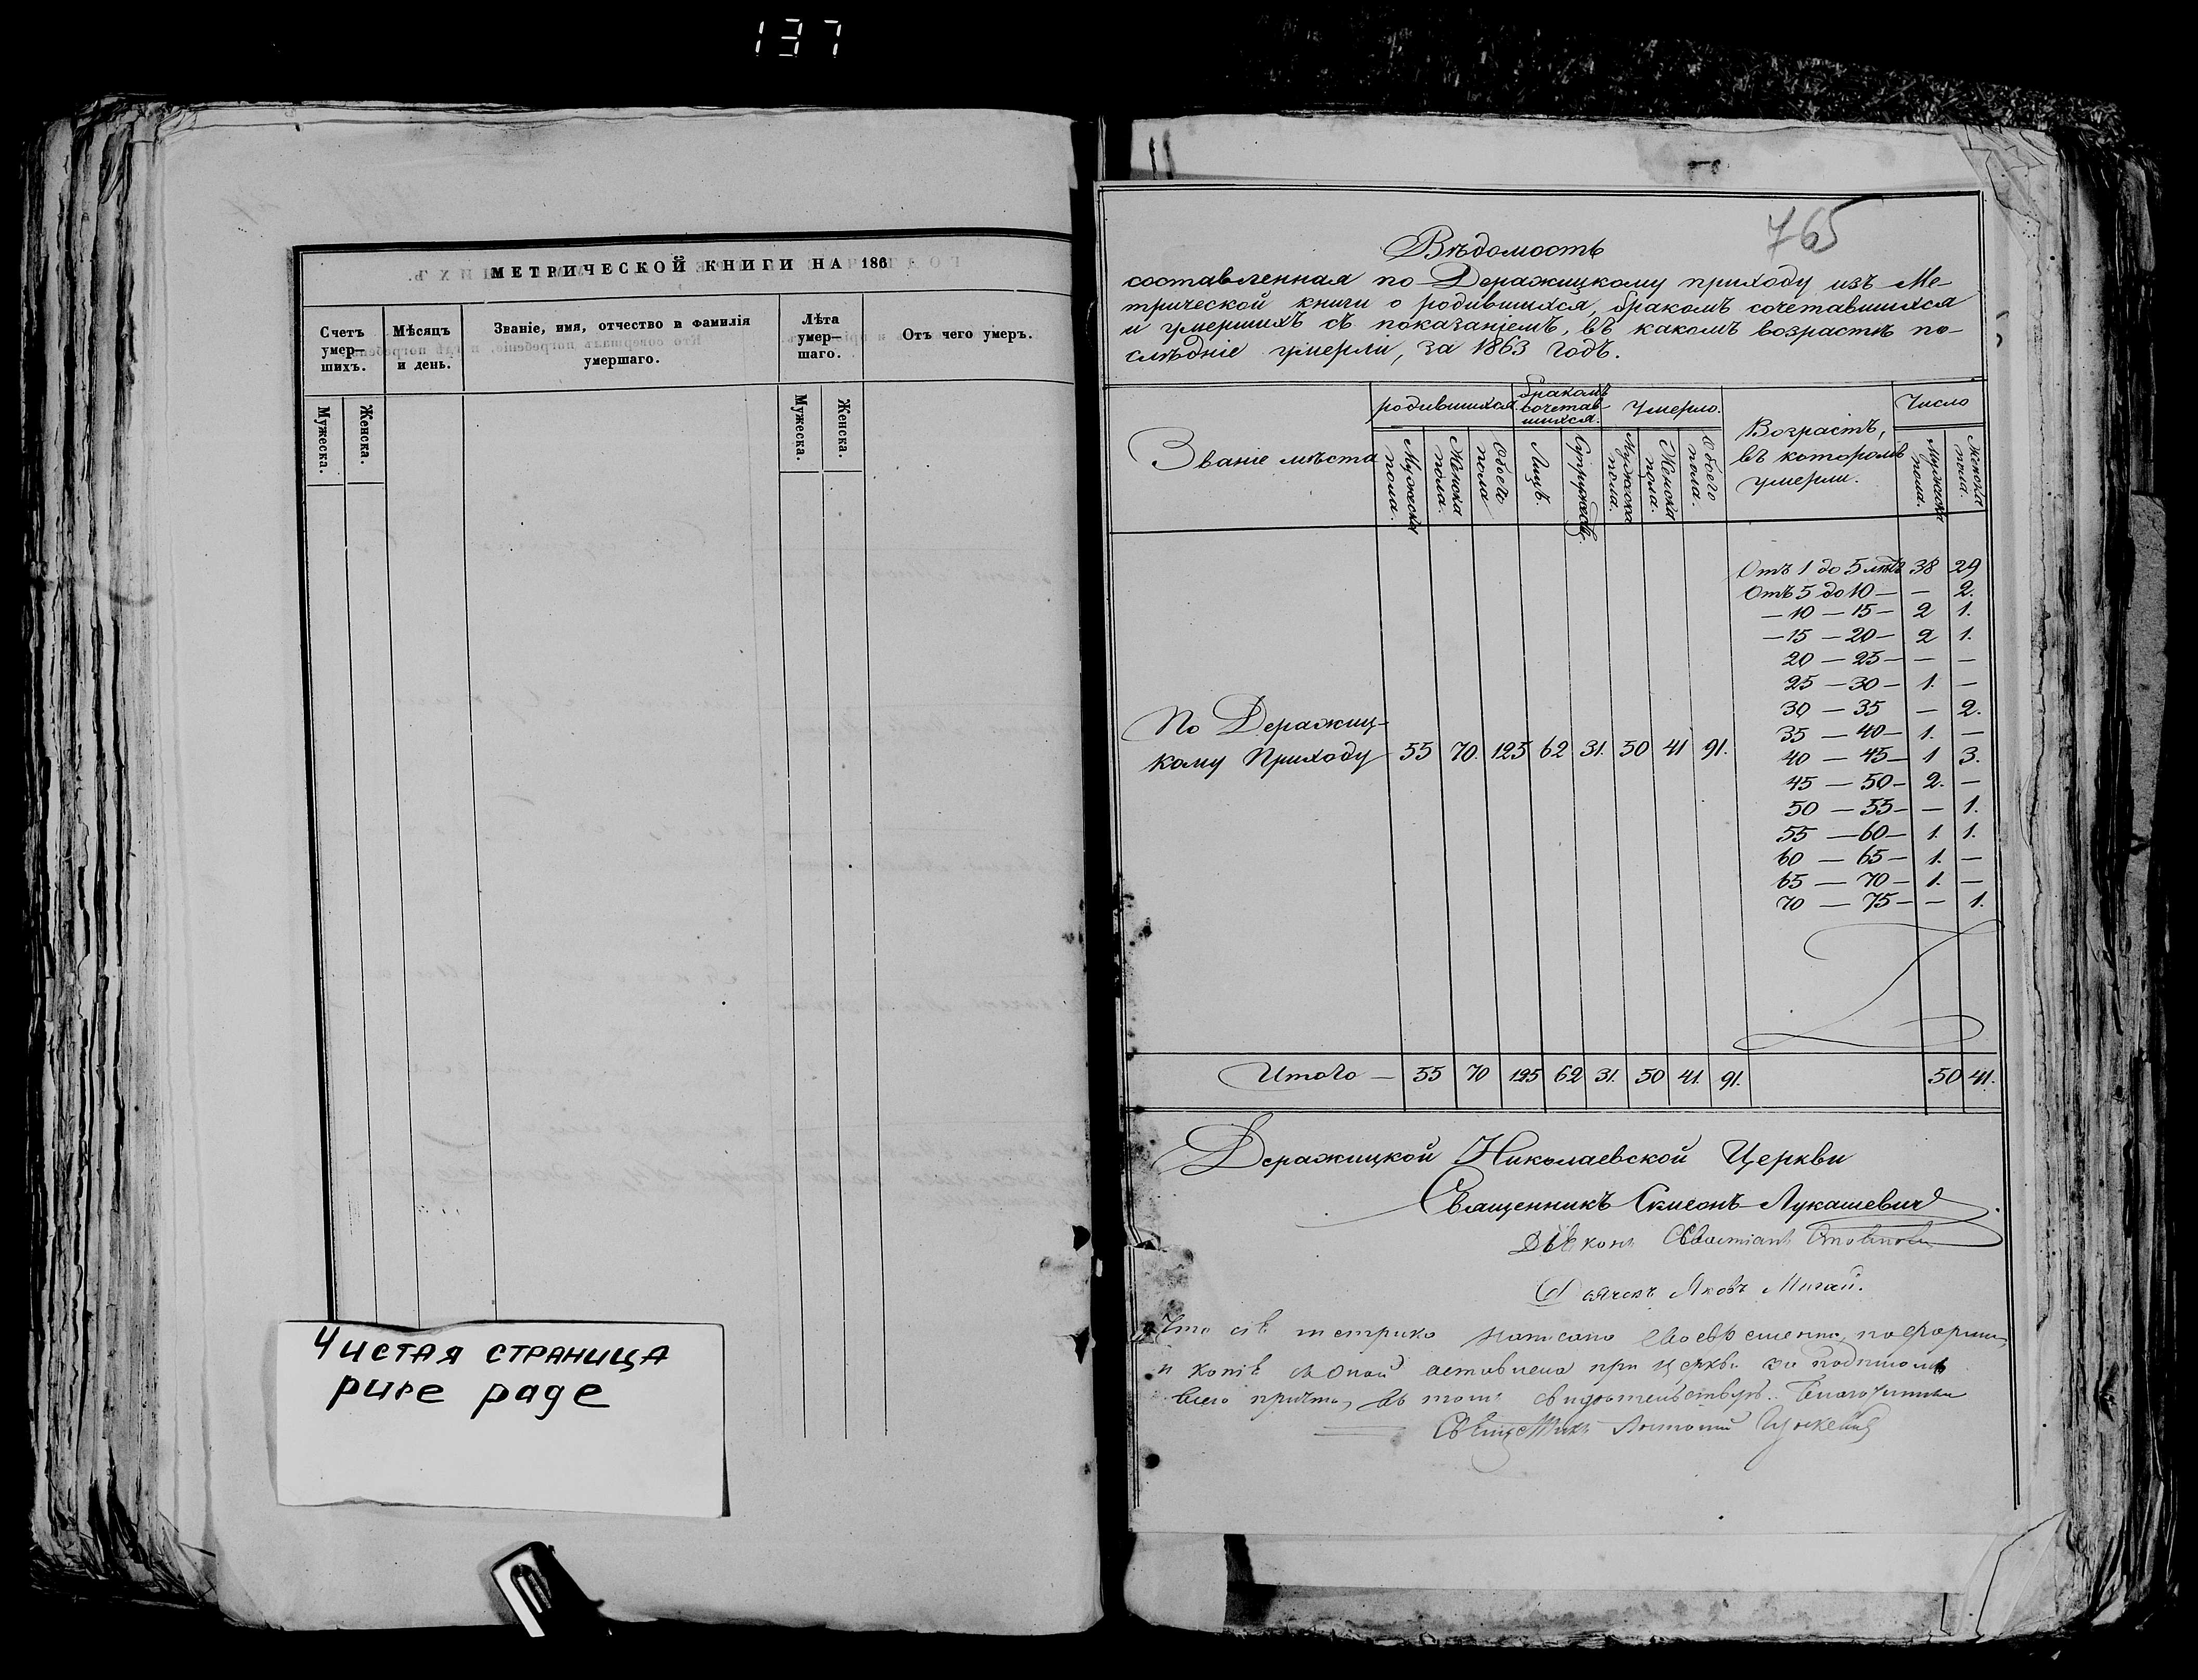 137
МЕТРИЧЕСКОЙ КНИГИ НА 186
Счетъ умер—шихъ.
Мѣсяцъ и день.
Званіе, имя, отчество и фамилія умершаго.
Лѣта умер—шаго.
Отъ чего умеръ.
Мужеска.
Женска.
Мужеска.
Женска.
Чистая страница
pure page
765
Вѣдомость
составленная по Деражицкому приходу изъ Ме-
трической книги о родившихся, бракомъ сочетавшихся
и умершихъ съ показаніемъ, въ какомъ возрастѣ по-
слѣдніе умерли, за 1863 годъ.
Званіе мѣста
родившихся
бракомъ сочетав-шихся.
Умерло.
Возрастъ, въ которомъ умерли.
Число
Мужеска пола.
Женска пола.
Обоего пола
Лицъ.
Супружествъ.
Мужеска пола.
Женска пола.
Обоего пола.
Мужеска пола.
Женска пола.
Отъ 1 до 5 лѣтъ 38 29
Отъ 5 до 10 — — 2.
— 10 — 15 — 2 1.
— 15 — 20 — 2 1.
20 — 25 — — —
25 — 30 — 1. —
30 — 35 — 2.
35 — 40 — 1. —
40 — 45 — 1 3.
45 — 50 — 2. —
50 — 55 — — 1.
55 — 60 — 1. 1.
60 — 65 — 1. —
65 — 70 — 1. —
70 — 75 — — 1.
По Деражиц-
кому Приходу 55 70. 125 62 31. 50 41 91.
Итого — 55 70 125 62 31. 50 41. 91. 50 41.
Деражицкой Николаевской Церкви
Священникъ Симеонъ Лукашевичъ
Діаконъ
Дьячекъ Яковъ Мигай.
Что сія метрика написана своевременно, по формѣ,
и копія съ оной оставлена при церкви за подписомъ
всего причта, въ томъ свидѣтельствуетъ. Благочинный
Священникъ Антоній